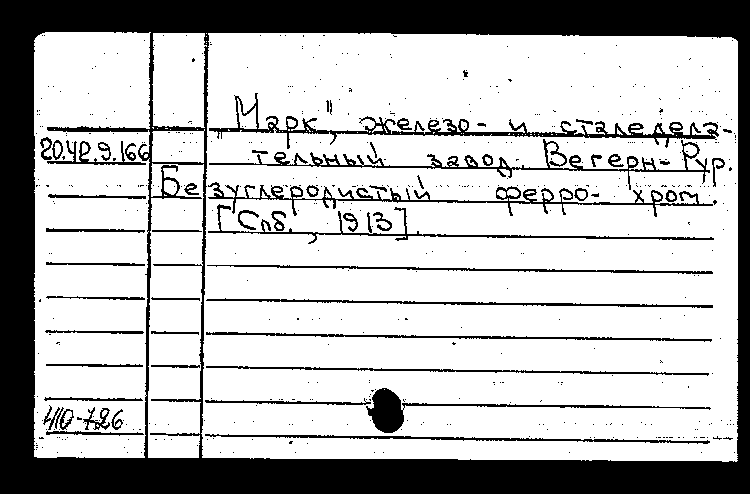 "Марк", железо- и сталедела-
20.42.9.166 тельный завод. Вегерн-Рур.
Безуглеродистый ферро-хром.
[Спб., 1913].
410-726